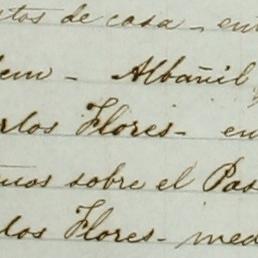 tos de casa - en
dem - Albañil
rlos Flores - en
nos sobre el Pas
los Flores - med